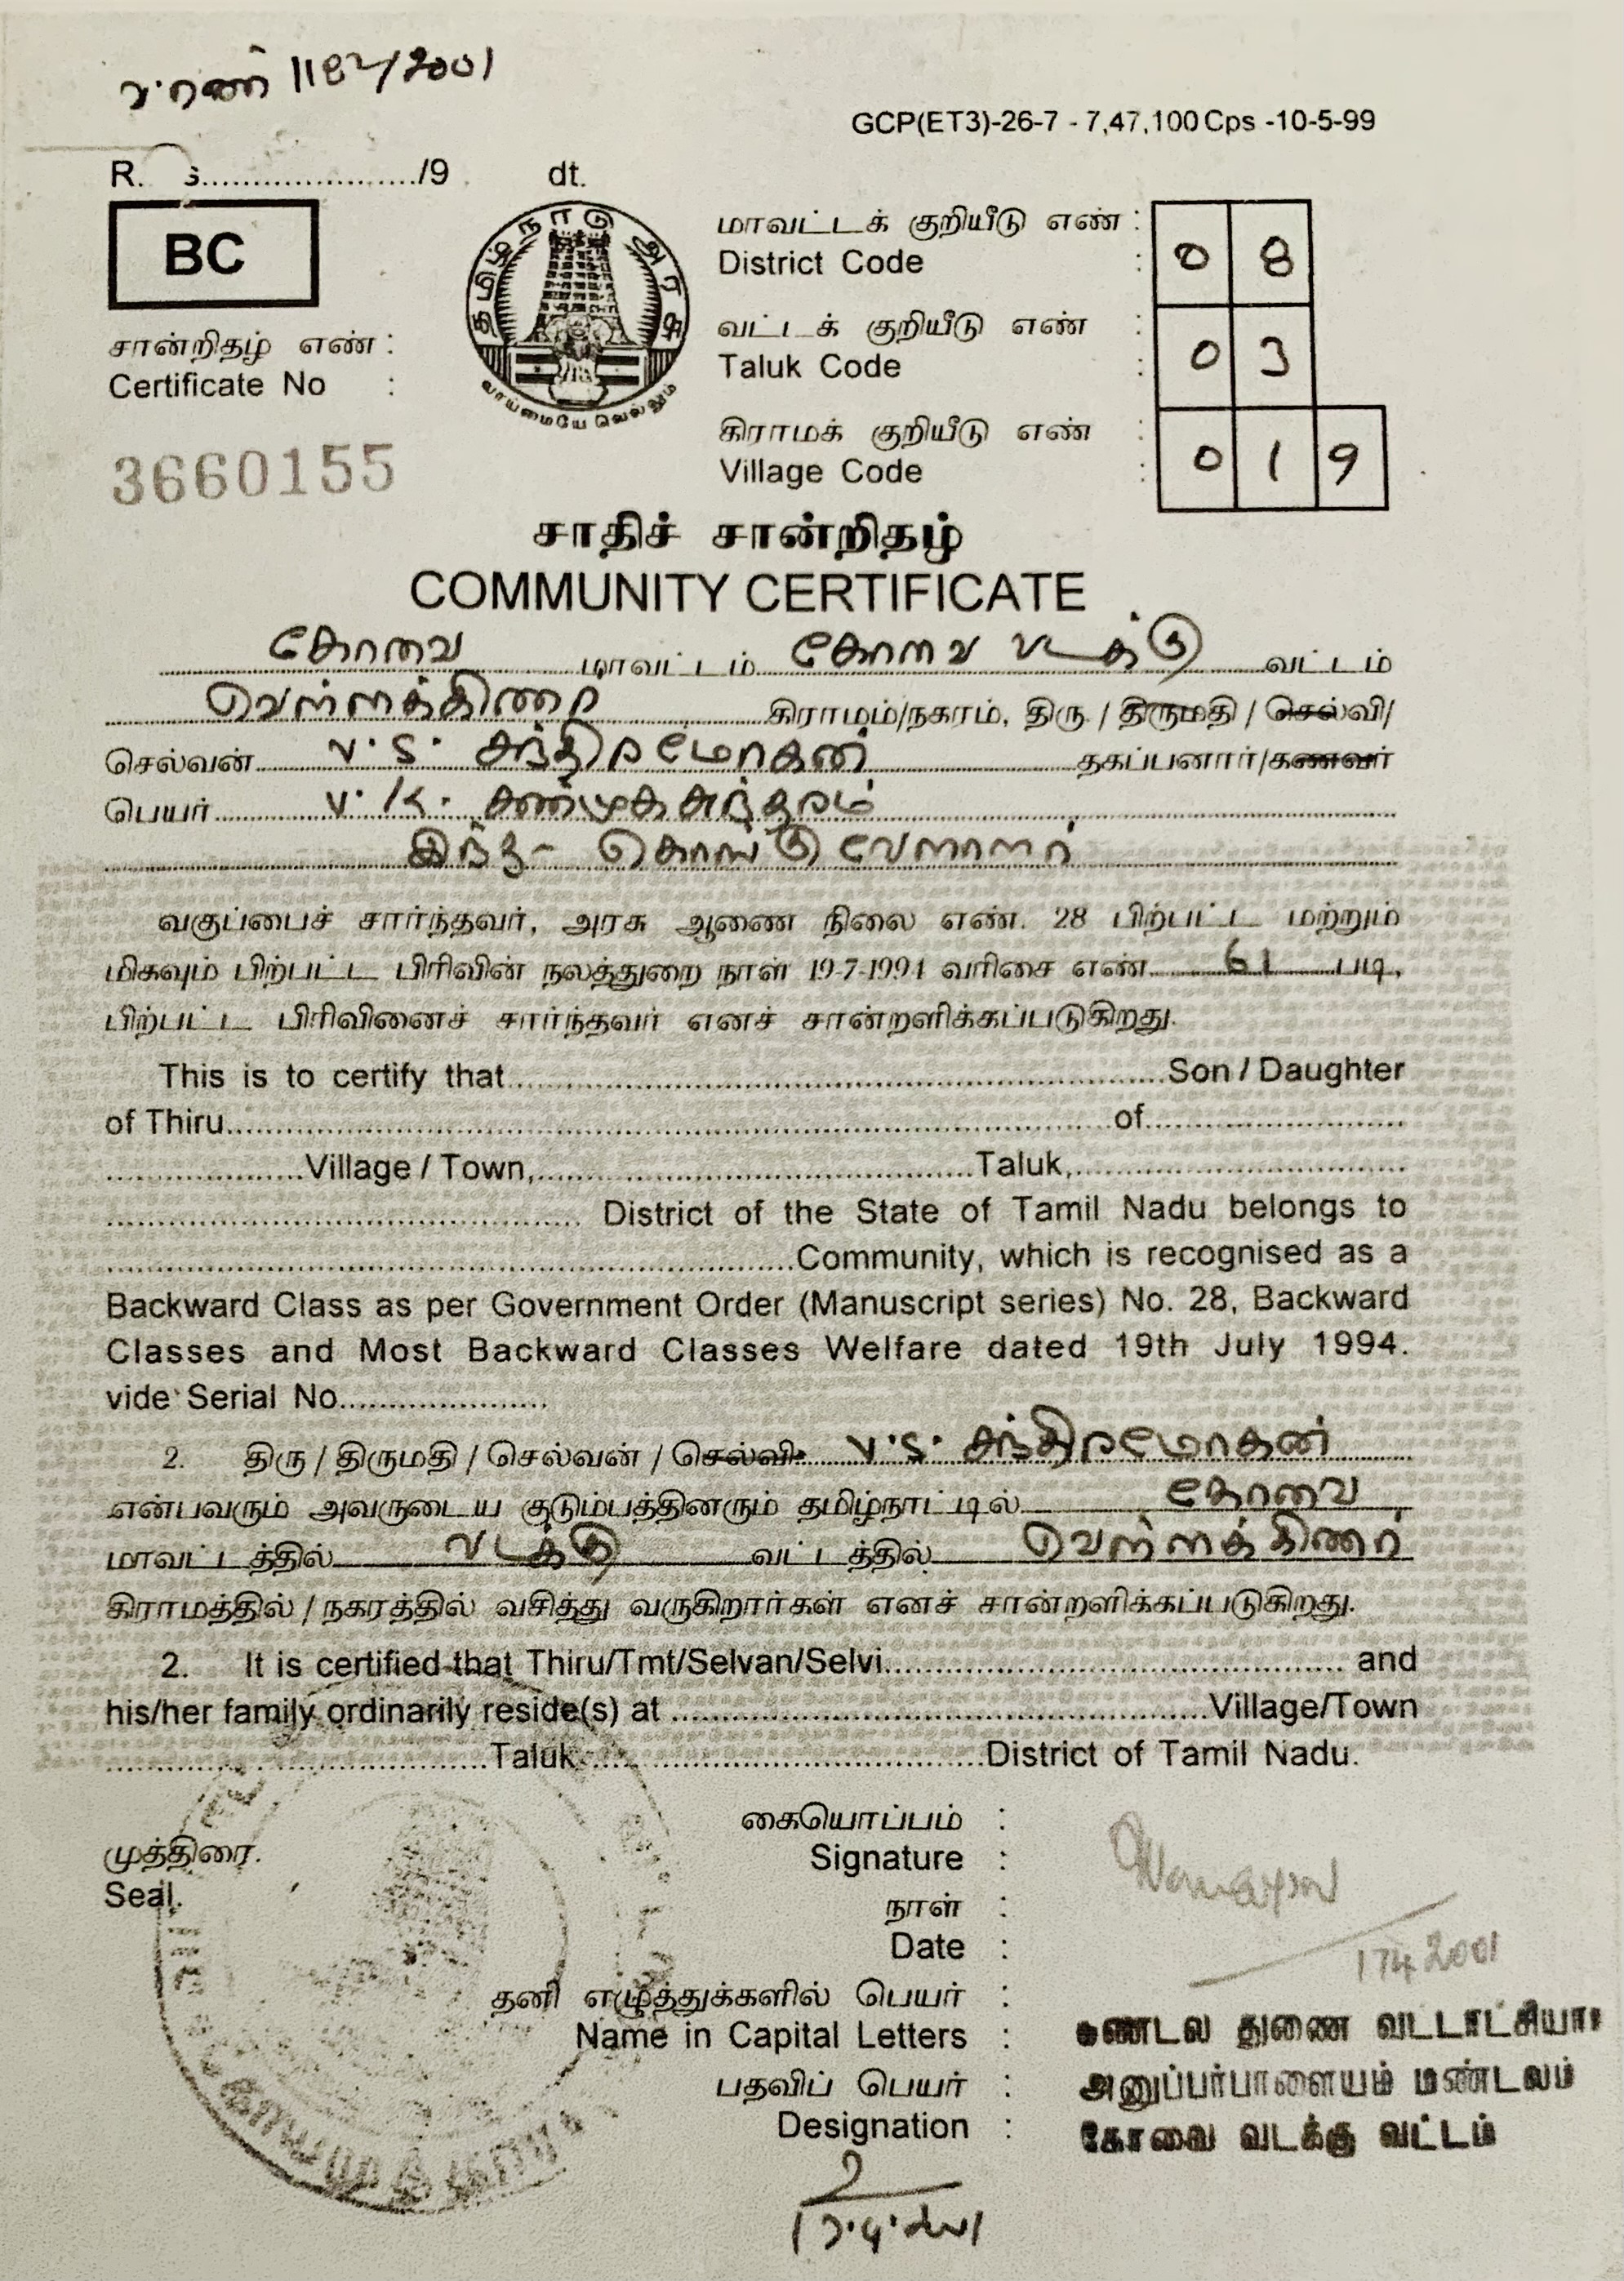 1182/2001
GCP(ET3)-26-7 - 7,47,100 Cps -10-5-99
R. s...................../9 dt.
BC
தமிழ்நாடு அரசு
வாய்மையே வெல்லும்
மாவட்டக் குறியீடு எண் :
District Code : 0 8
வட்டக் குறியீடு எண் :
Taluk Code : 0 3
கிராமக் குறியீடு எண் :
Village Code : 0 1 9
சான்றிதழ் எண் :
Certificate No :
3660155
சாதிச் சான்றிதழ்
COMMUNITY CERTIFICATE
கோவை மாவட்டம் கோவை வடக்கு வட்டம்
வெள்ளக்கிணர் கிராமம்/நகரம், திரு / திருமதி / செல்வி/
செல்வன் V.S. சந்திரமோகன் தகப்பனார்/கணவர்
பெயர் V.K. சண்முகசுந்தரம்
இந்து - கொங்கு வேளாளர்
வகுப்பைச் சார்ந்தவர், அரசு ஆணை நிலை எண். 28 பிற்பட்ட மற்றும்
மிகவும் பிற்பட்ட பிரிவின் நலத்துறை நாள் 19-7-1994 வரிசை எண் 61 படி,
பிற்பட்ட பிரிவினைச் சார்ந்தவர் எனச் சான்றளிக்கப்படுகிறது.
This is to certify that..............................Son / Daughter
of Thiru..............................of..............................
....................Village / Town,..............................Taluk,..............................
.............................. District of the State of Tamil Nadu belongs to
..............................Community, which is recognised as a
Backward Class as per Government Order (Manuscript series) No. 28, Backward
Classes and Most Backward Classes Welfare dated 19th July 1994.
vide Serial No.....................
2. திரு / திருமதி / செல்வன் / செல்வி V.S. சந்திரமோகன்
என்பவரும் அவருடைய குடும்பத்தினரும் தமிழ்நாட்டில் கோவை
மாவட்டத்தில் வடக்கு வட்டத்தில் வெள்ளக்கிணர்
கிராமத்தில் / நகரத்தில் வசித்து வருகிறார்கள் எனச் சான்றளிக்கப்படுகிறது.
2. It is certified that Thiru/Tmt/Selvan/Selvi.............................. and
his/her family ordinarily reside(s) at ..............................Village/Town
..............................Taluk..............................District of Tamil Nadu.
கையொப்பம் :
Signature :
முத்திரை.
Seal.
நாள் :
Date : 17 4 2001
தனி எழுத்துக்களில் பெயர் :
Name in Capital Letters :
மண்டல துணை வட்டாட்சியர்
பதவிப் பெயர் :
அனுப்பர்பாளையம் மண்டலம்
Designation :
கோவை வடக்கு வட்டம்
17.4.2001